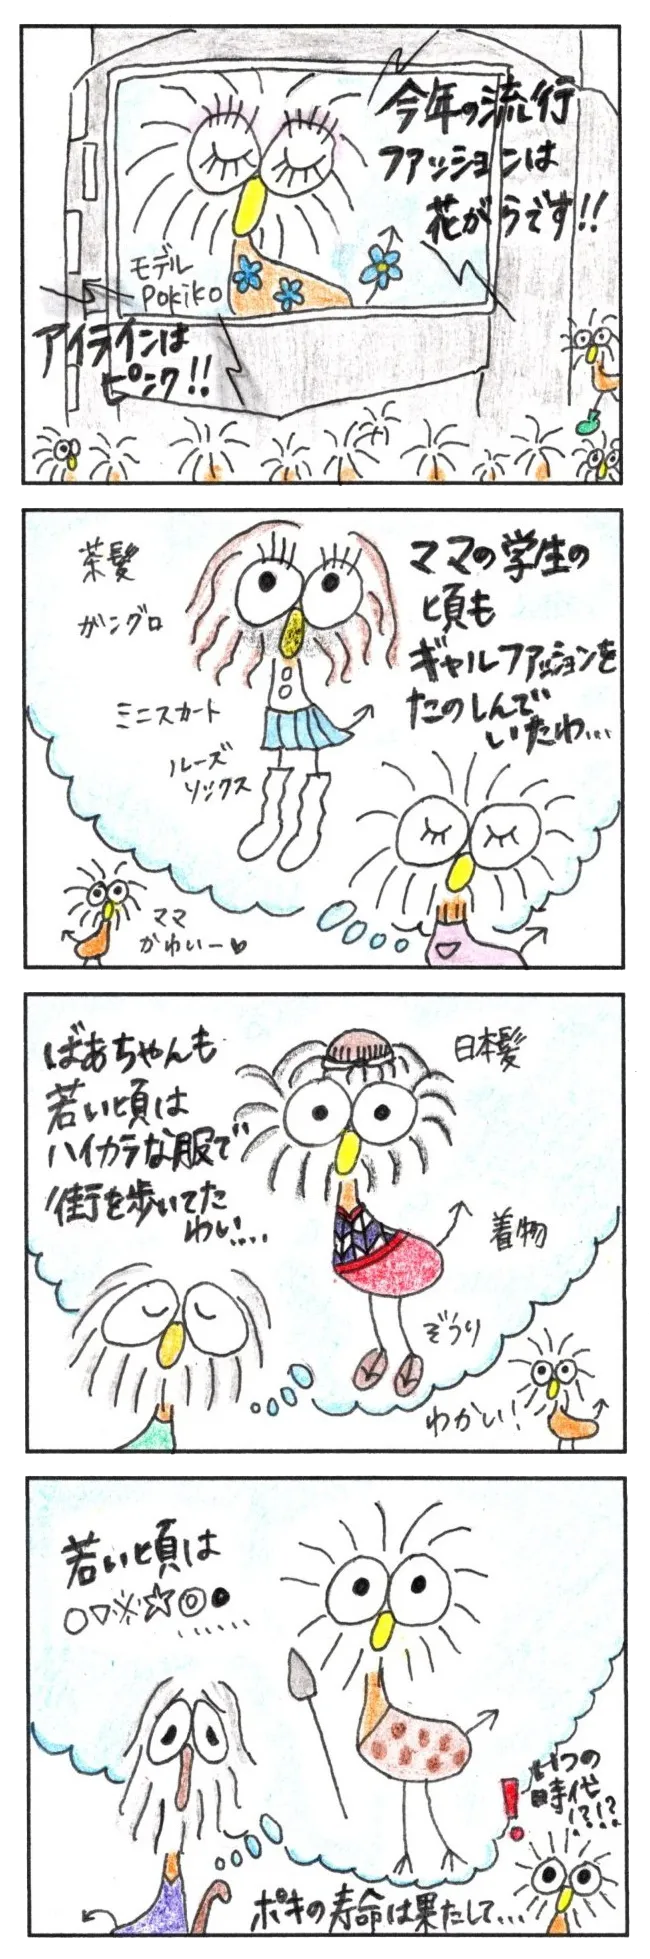 今年の流行
ファッションは
花がらです!!
モデル
Pokiko
アイラインは
ピンク!!
ママの学生の
頃も
ギャルファッションを
たのしんで
いたわ...
茶髪
ガングロ
ミニスカート
ルーズ
ソックス
ママ
かわいー♥
ばあちゃんも
若い頃は
ハイカラな服で
街を歩いてた
わい....
日本髪
着物
ぞうり
わかい!
若い頃は
○▽※☆◎●......
いつの
時代
!?!?
ポキの寿命は果たして...